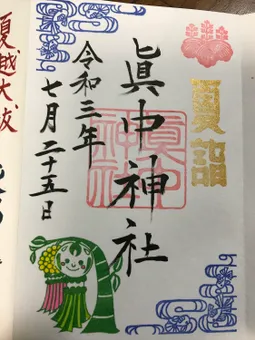 夏詣
眞中神社
令和三年
七月二十五日
夏越大祓